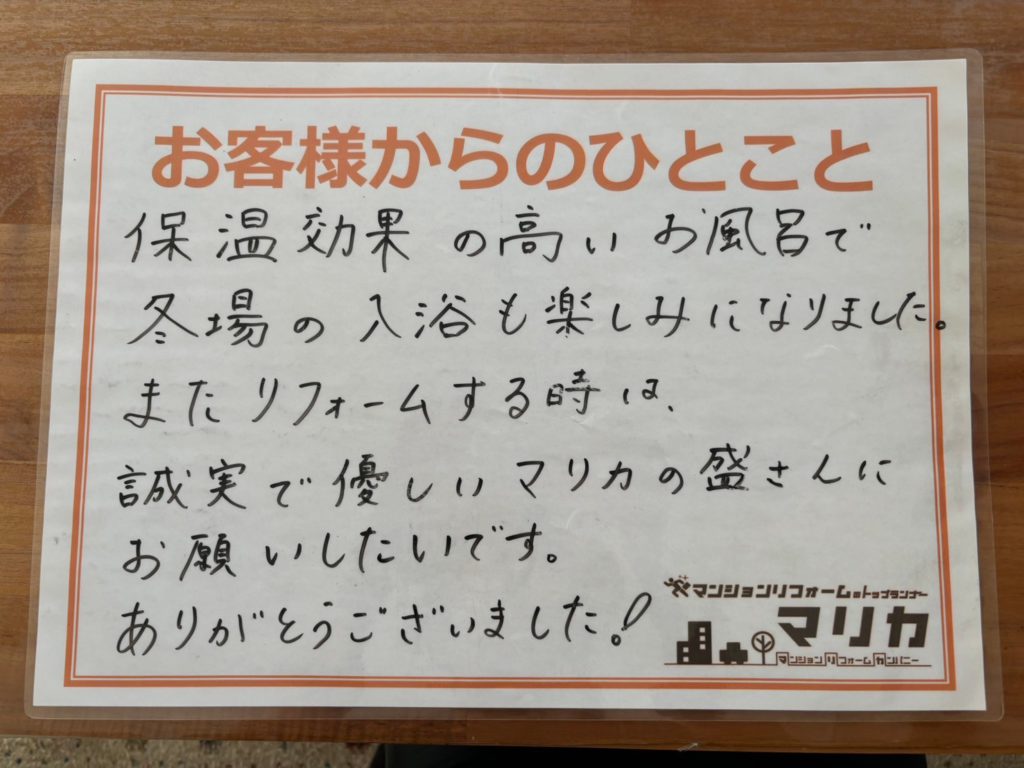 お客様からのひとこと
保温効果の高いお風呂で
冬場の入浴も楽しみになりました。
またリフォームする時は、
誠実で優しいマリカの盛さんに
お願いしたいです。
ありがとうございました!
マンションリフォームのトップランナー
マリカ
マンションリフォームカンパニー